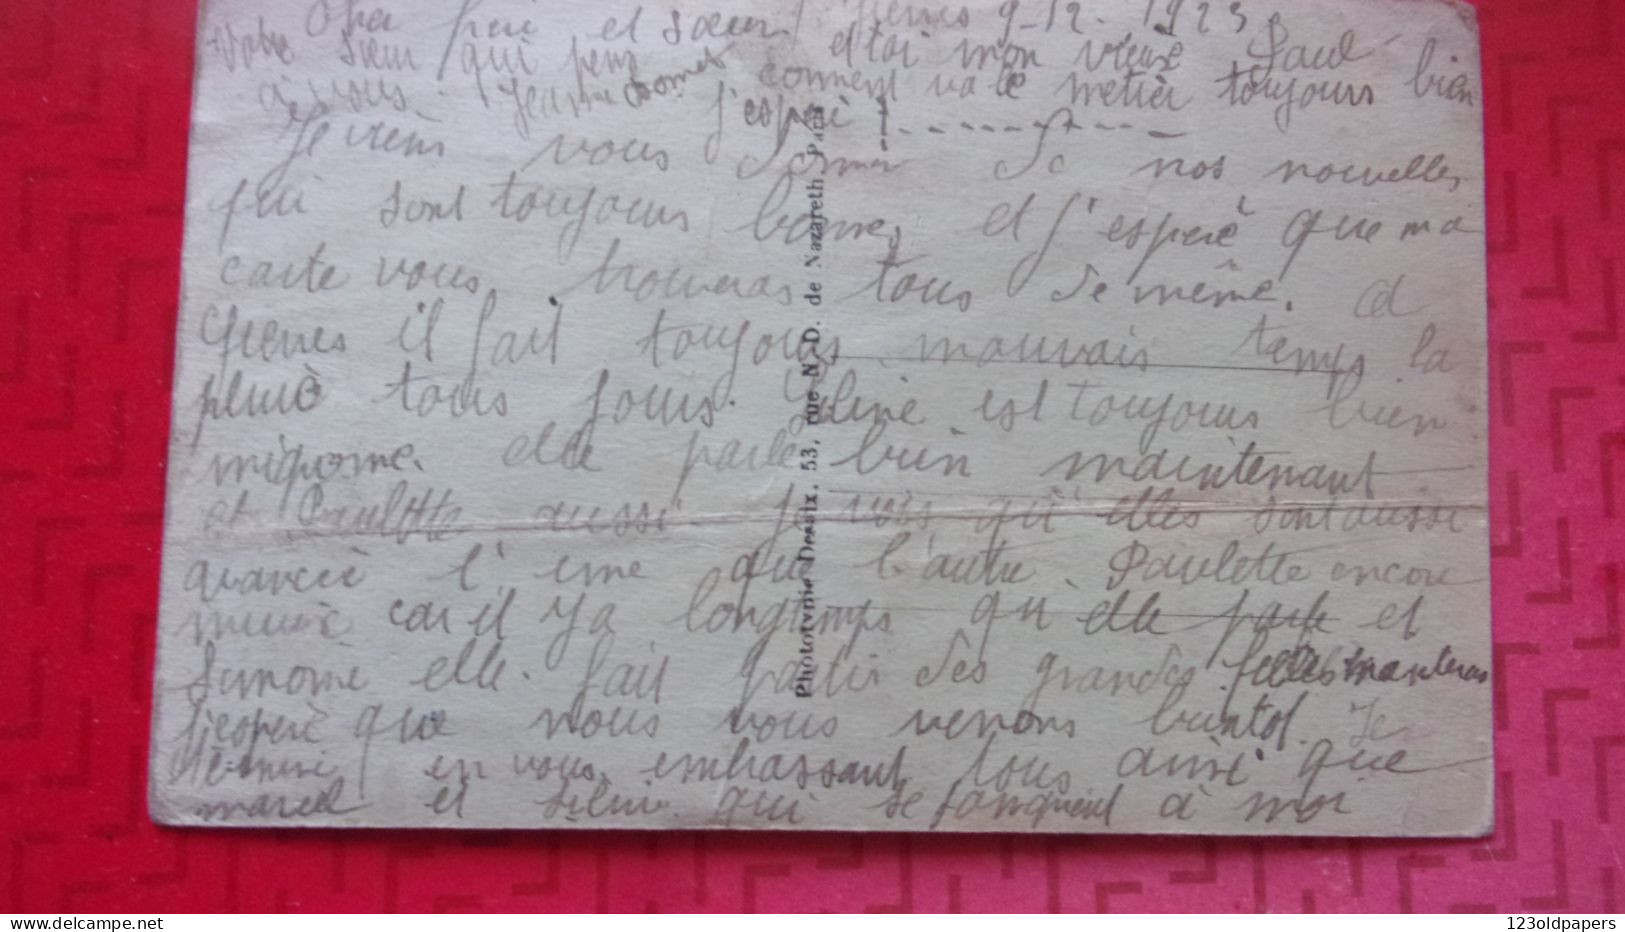 frère et sœur 9-12-1923
votre sœur qui pense et toi mon vieux Paul
à vous. comment va le metier toujours bien
j'espère !
Je viens vous donner de nos nouvelles
qui sont toujours bonne, et j'espere que ma
carte vous trouveras tous de même. a
il fait toujours mauvais temps la
pluie tous jours. est toujours bien
mignone. elle parle bien maintenant
et Paulette aussi je vois qu'elles sont aussi
avancée l'une que l'autre. Paulette encore
mieux car il y a longtemps qu'elle parle et
Simone elle. fait partir des grandes filles
j'espere que nous vous verrons bientot. Je
termine en vous embrassant tous ainsi que
marcel et qui se joingnent à moi
Phototypie Dessaix, 53, rue N.-D. de Nazareth, Paris
123oldpapers